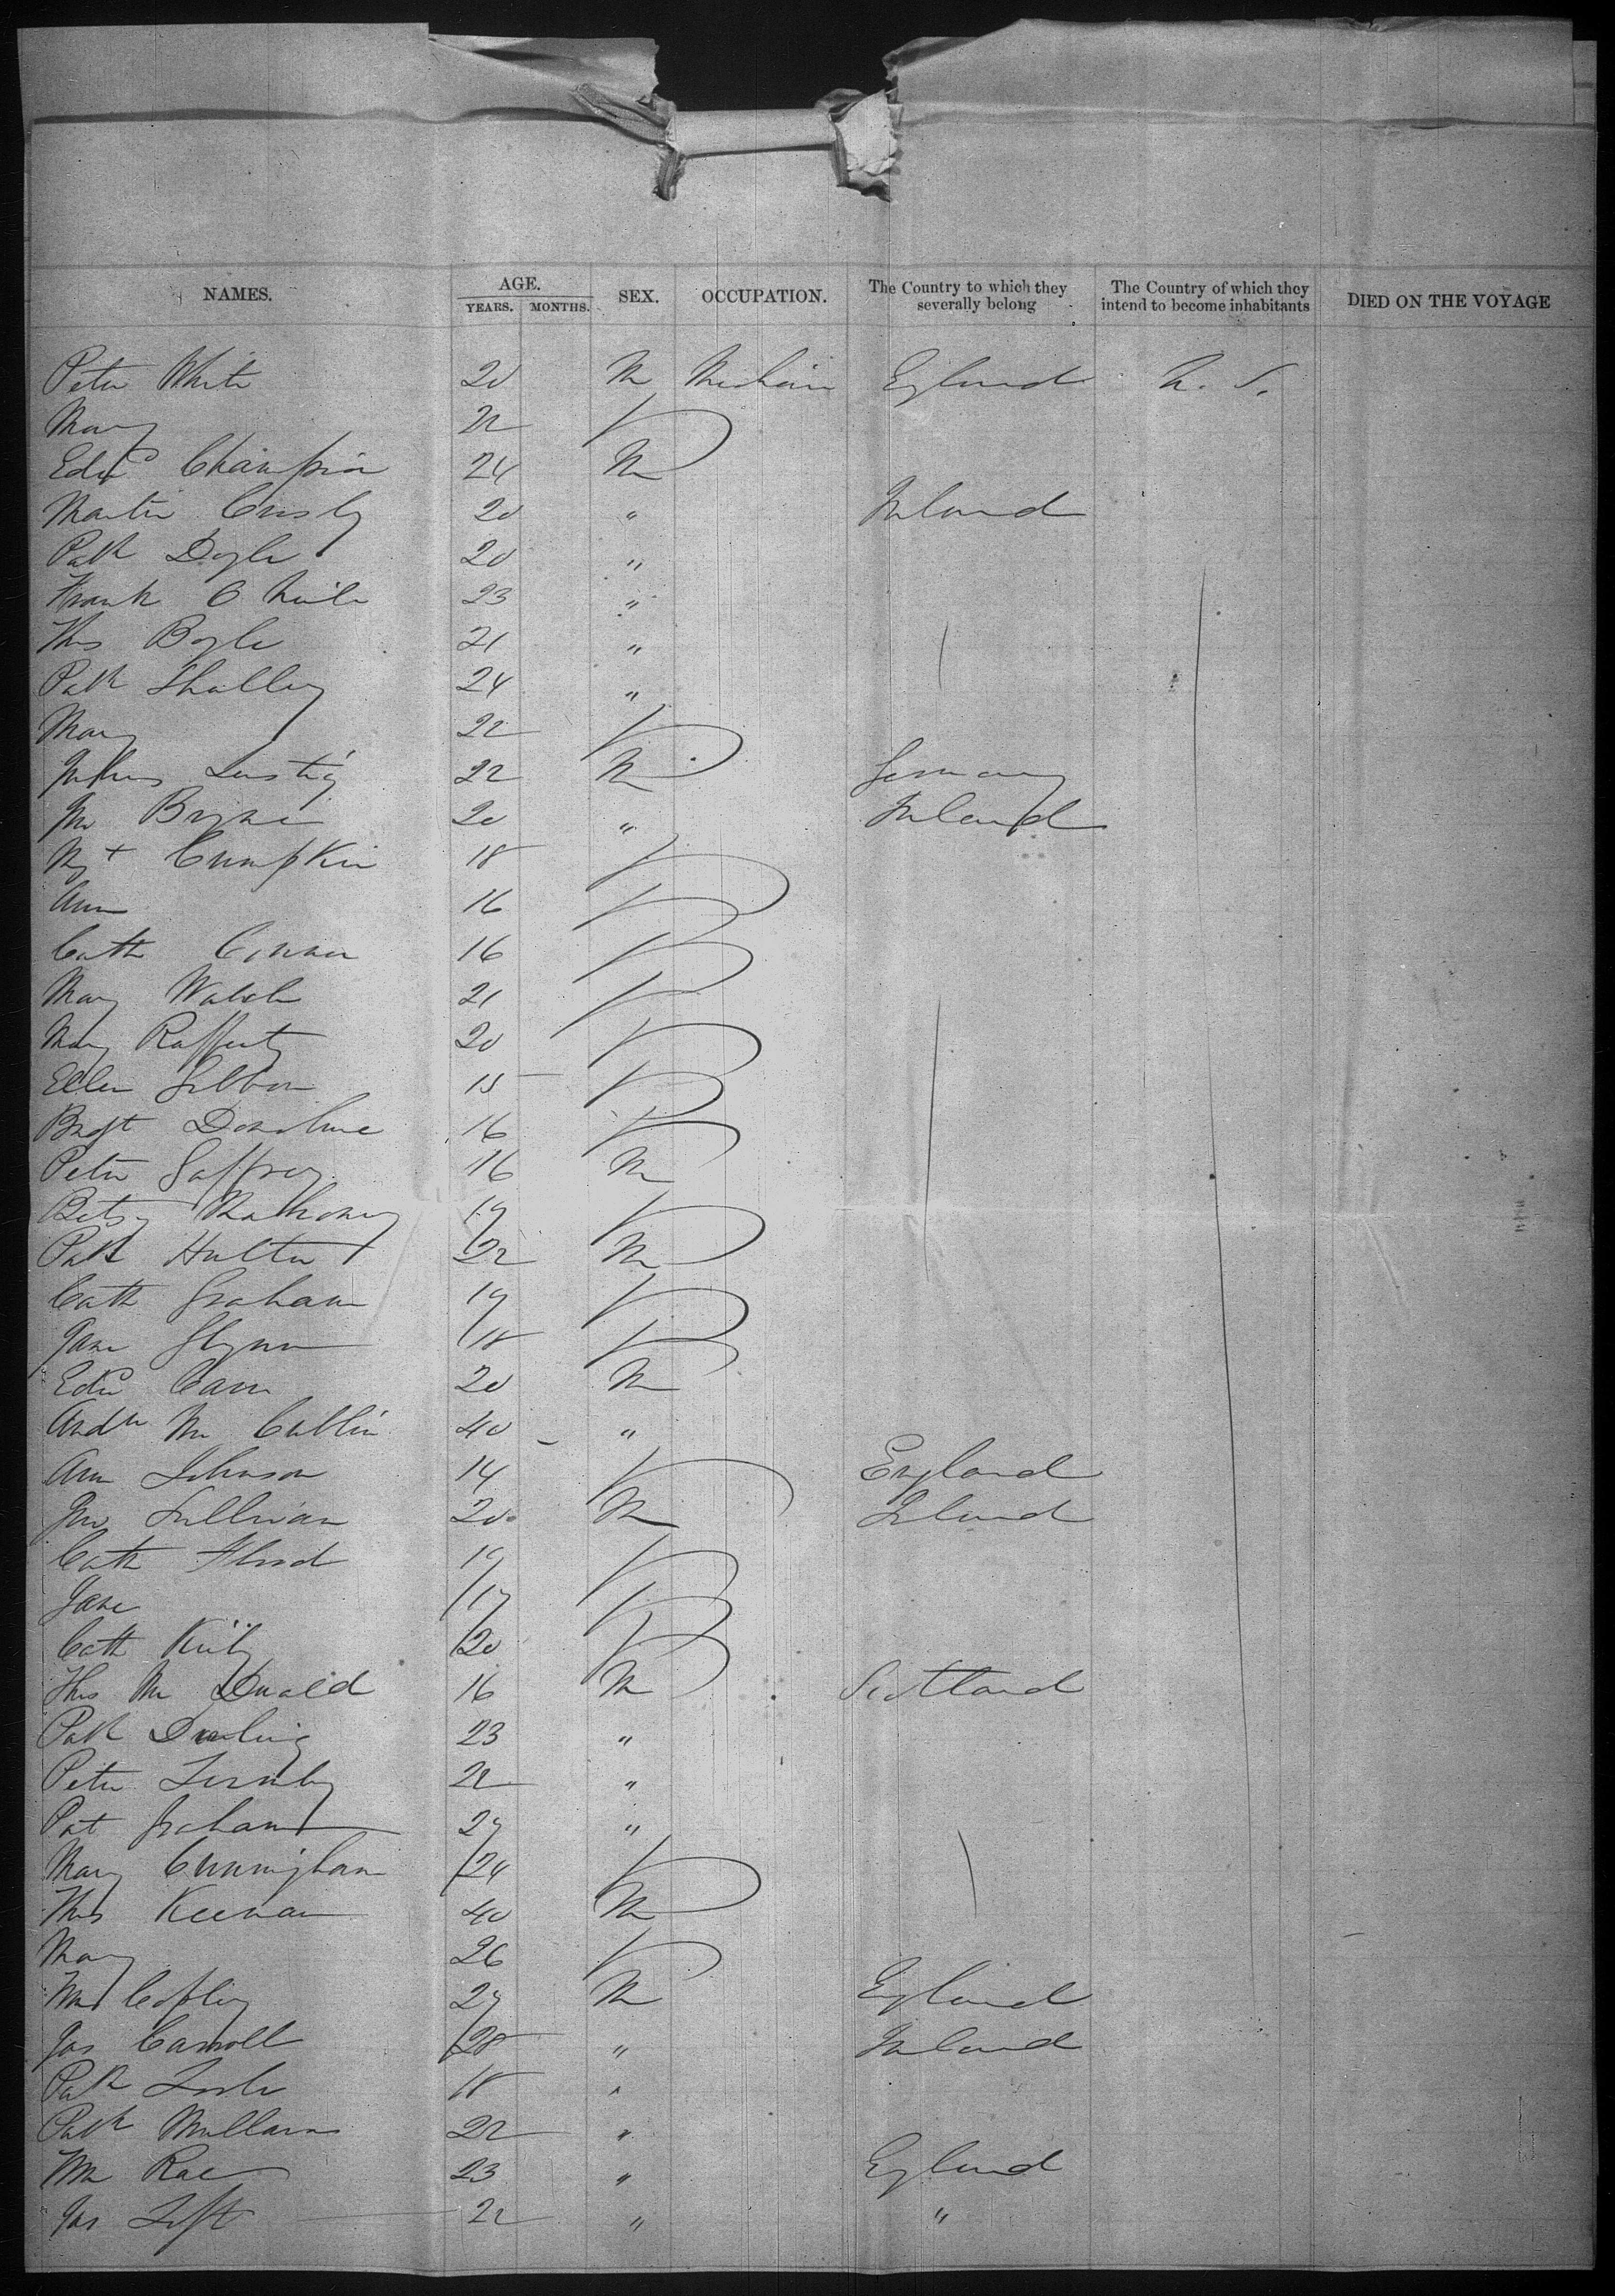 NAMES. AGE. YEARS. MONTHS. SEX. OCCUPATION. The Country to which they severally belong The Country of which they intend to become inhabitants DIED ON THE VOYAGE
Peter White 20 M England U. S.
Mary 22
Edwd Champion 24 M
Martin 20 " Ireland
Patk Doyle 20 "
Frank O Neile 23 "
Thos Boyle 21 "
Patk Shalley 24 "
Mary 22
Julius Lustig 22 M Germany
Jno Byrne 20 " Ireland
Mgt Cumpkin 18
Ann 16
Cath Connor 16
Mary Walsh 21
Mary Rafferty 20
Ellen Gibbon 15
Bridgt Donohue 16
Peter Gaffrey 16 M
Betsy Mahoney 19
Patk Hulter 22 M
Cath Graham 19
Jane Glynn 18
Edwd Cam 20 M
Andw Mc Cablin 40 "
Ann Johnson 14 England
Jno Sullivan 20 M Ireland
Cath Flood 19
Jane 17
Cath 20
Thos Mc Donald 16 M Scotland
Patk Darling 23 "
Peter 22 "
Pat Graham 27 "
Mary Cunningham 24
Thos Keenan 40 M
Mary 26
Wm Copley 27 M England
Jas Carroll 28 " Ireland
Patk 18 "
Patk Mullarns 22 "
Wm Rae 23 " England
Jas Lift 22 " "